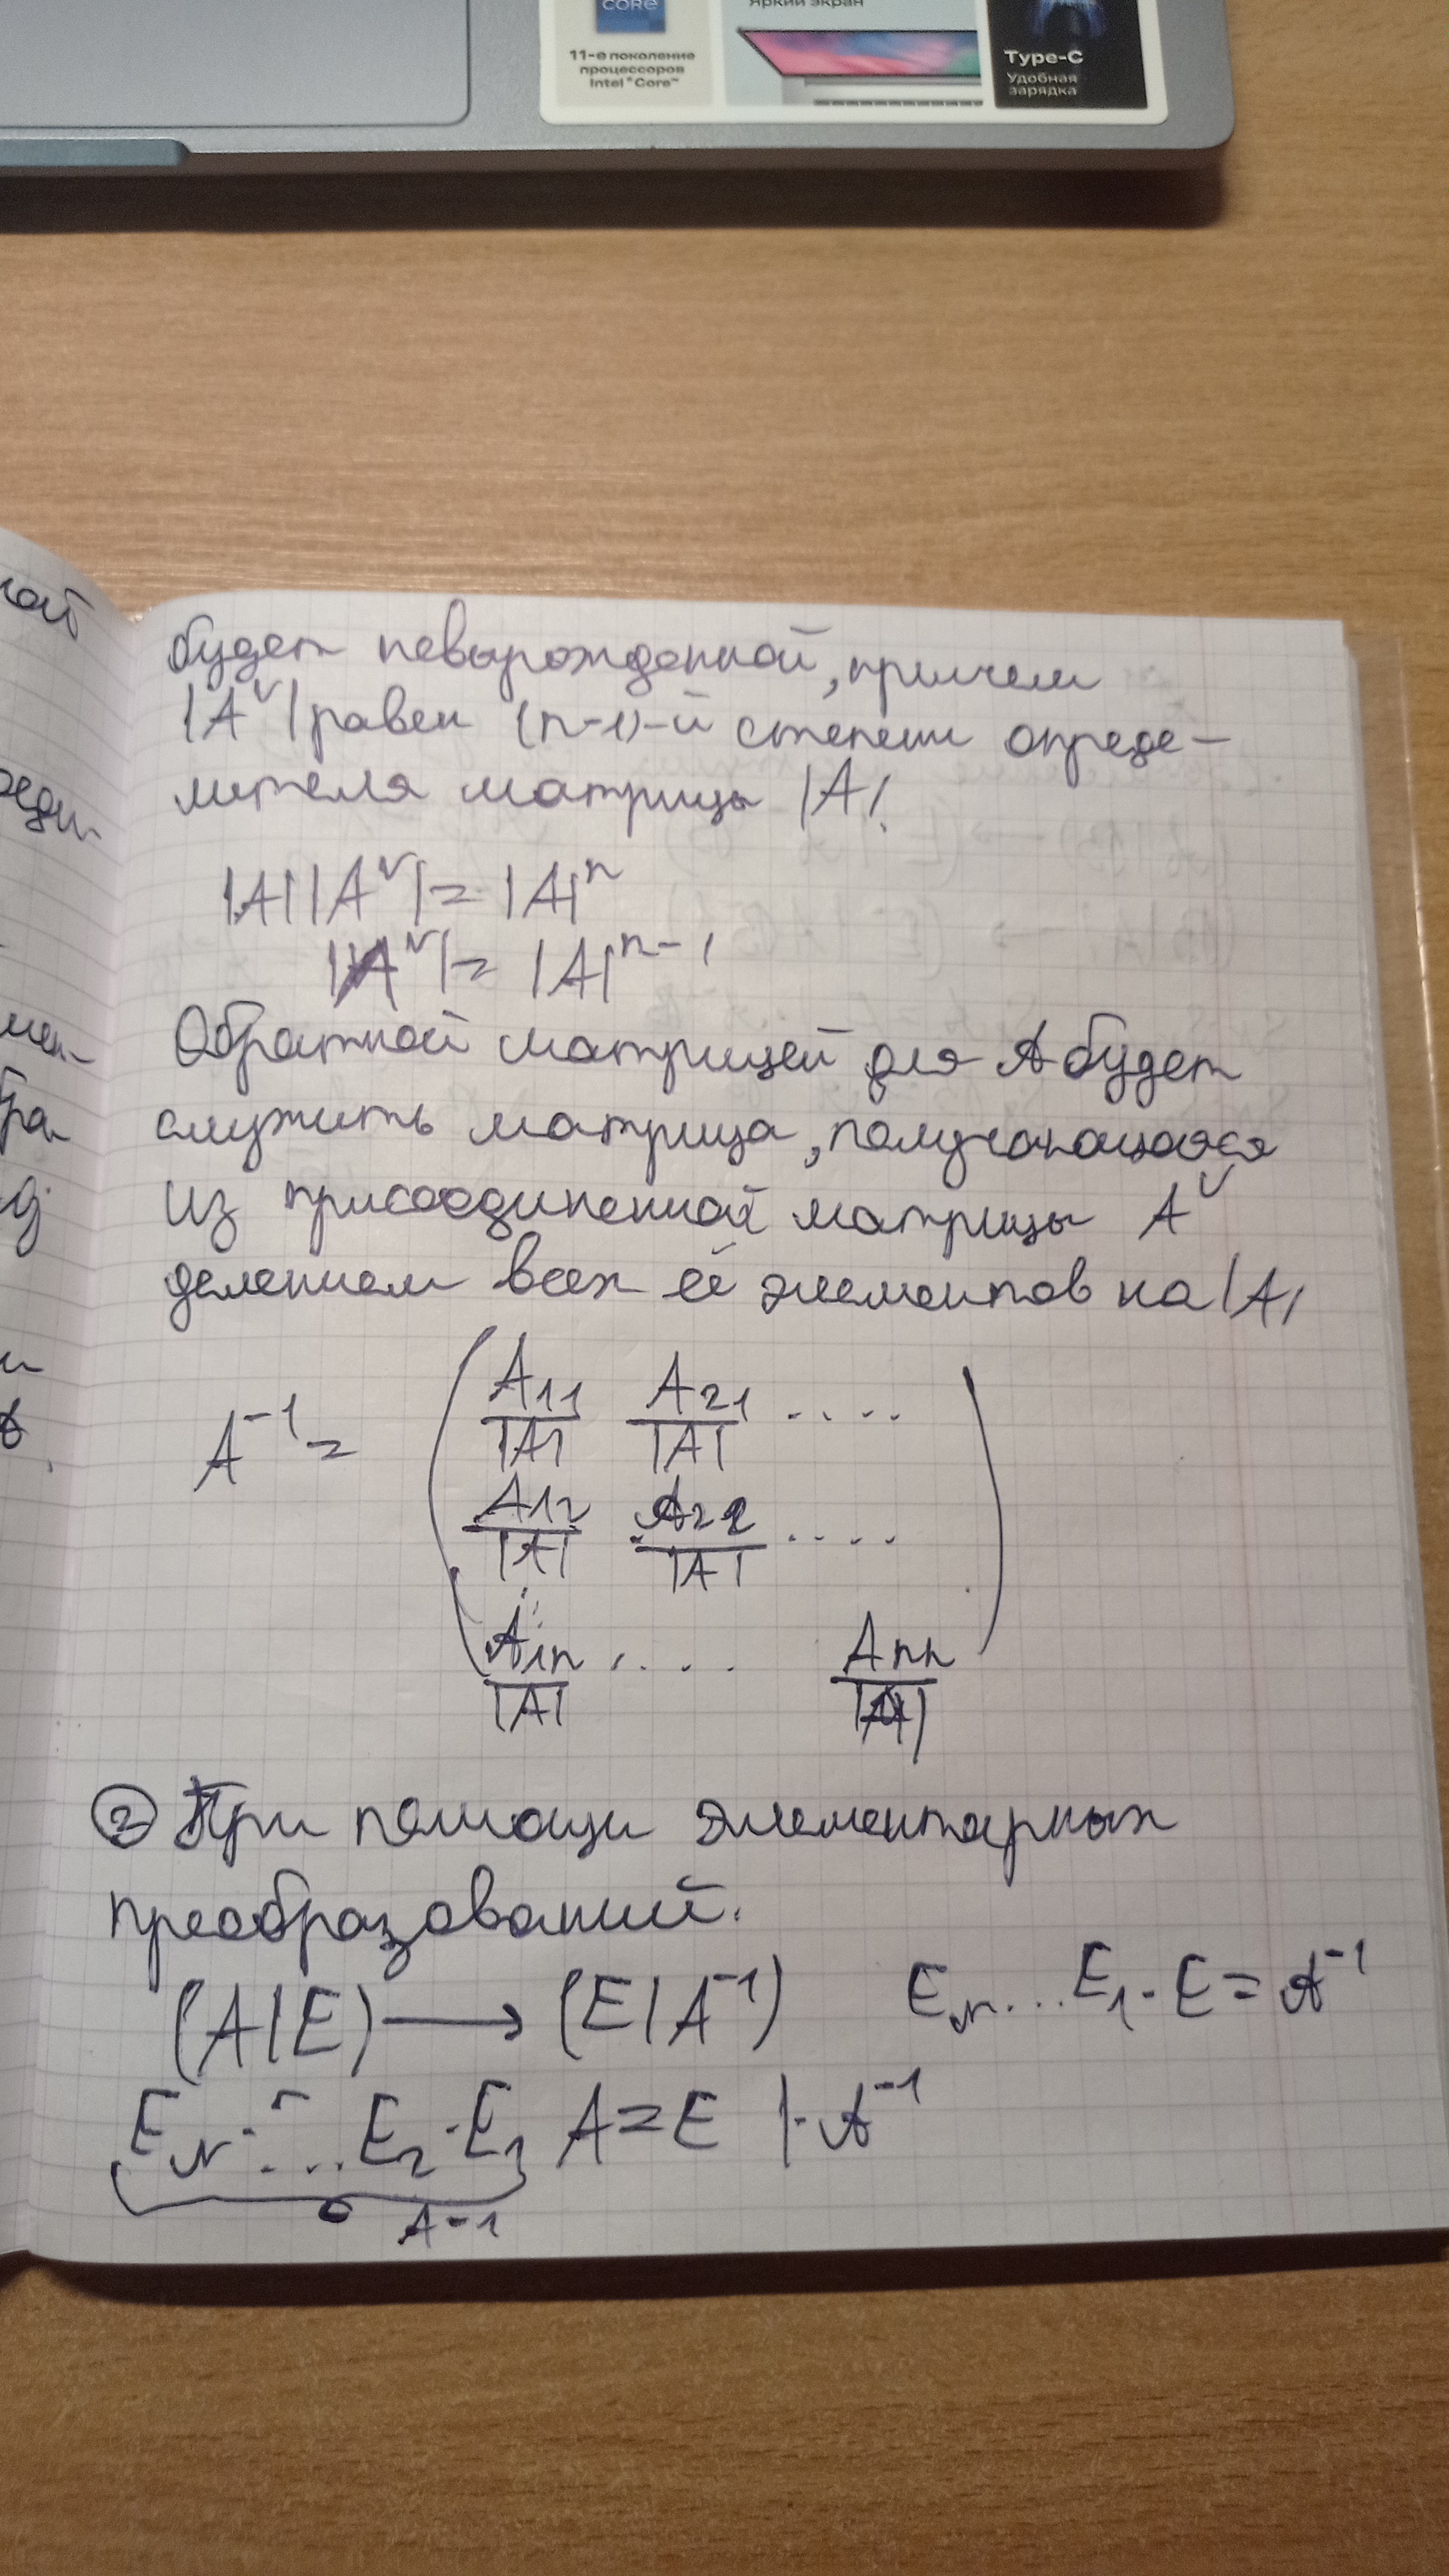 CORE
11-е поколение
процессоров
Intel® Core™
Яркий экран
Type-C
Удобная
зарядка
будет невырожденной, причем
|Aᵛ| равен (n-1)-й степени опреде-
лителя матрицы |A|.
|A||Aᵛ| = |A|ⁿ
|Aᵛ| = |A|ⁿ⁻¹
Обратной матрицей для A будет
служить матрица, получающаяся
из присоединенной матрицы Aᵛ
делением всех её элементов на |A|
A⁻¹ =
A₁₁/|A| A₂₁/|A| ....
A₁₂/|A| A₂₂/|A| ....
A₁ₙ/|A| .... Aₙₙ/|A|
② При помощи элементарных
преобразований.
(A|E) → (E|A⁻¹) E_N...E₁·E = A⁻¹
E_N·...E₂·E₁ A = E |·A⁻¹
A⁻¹